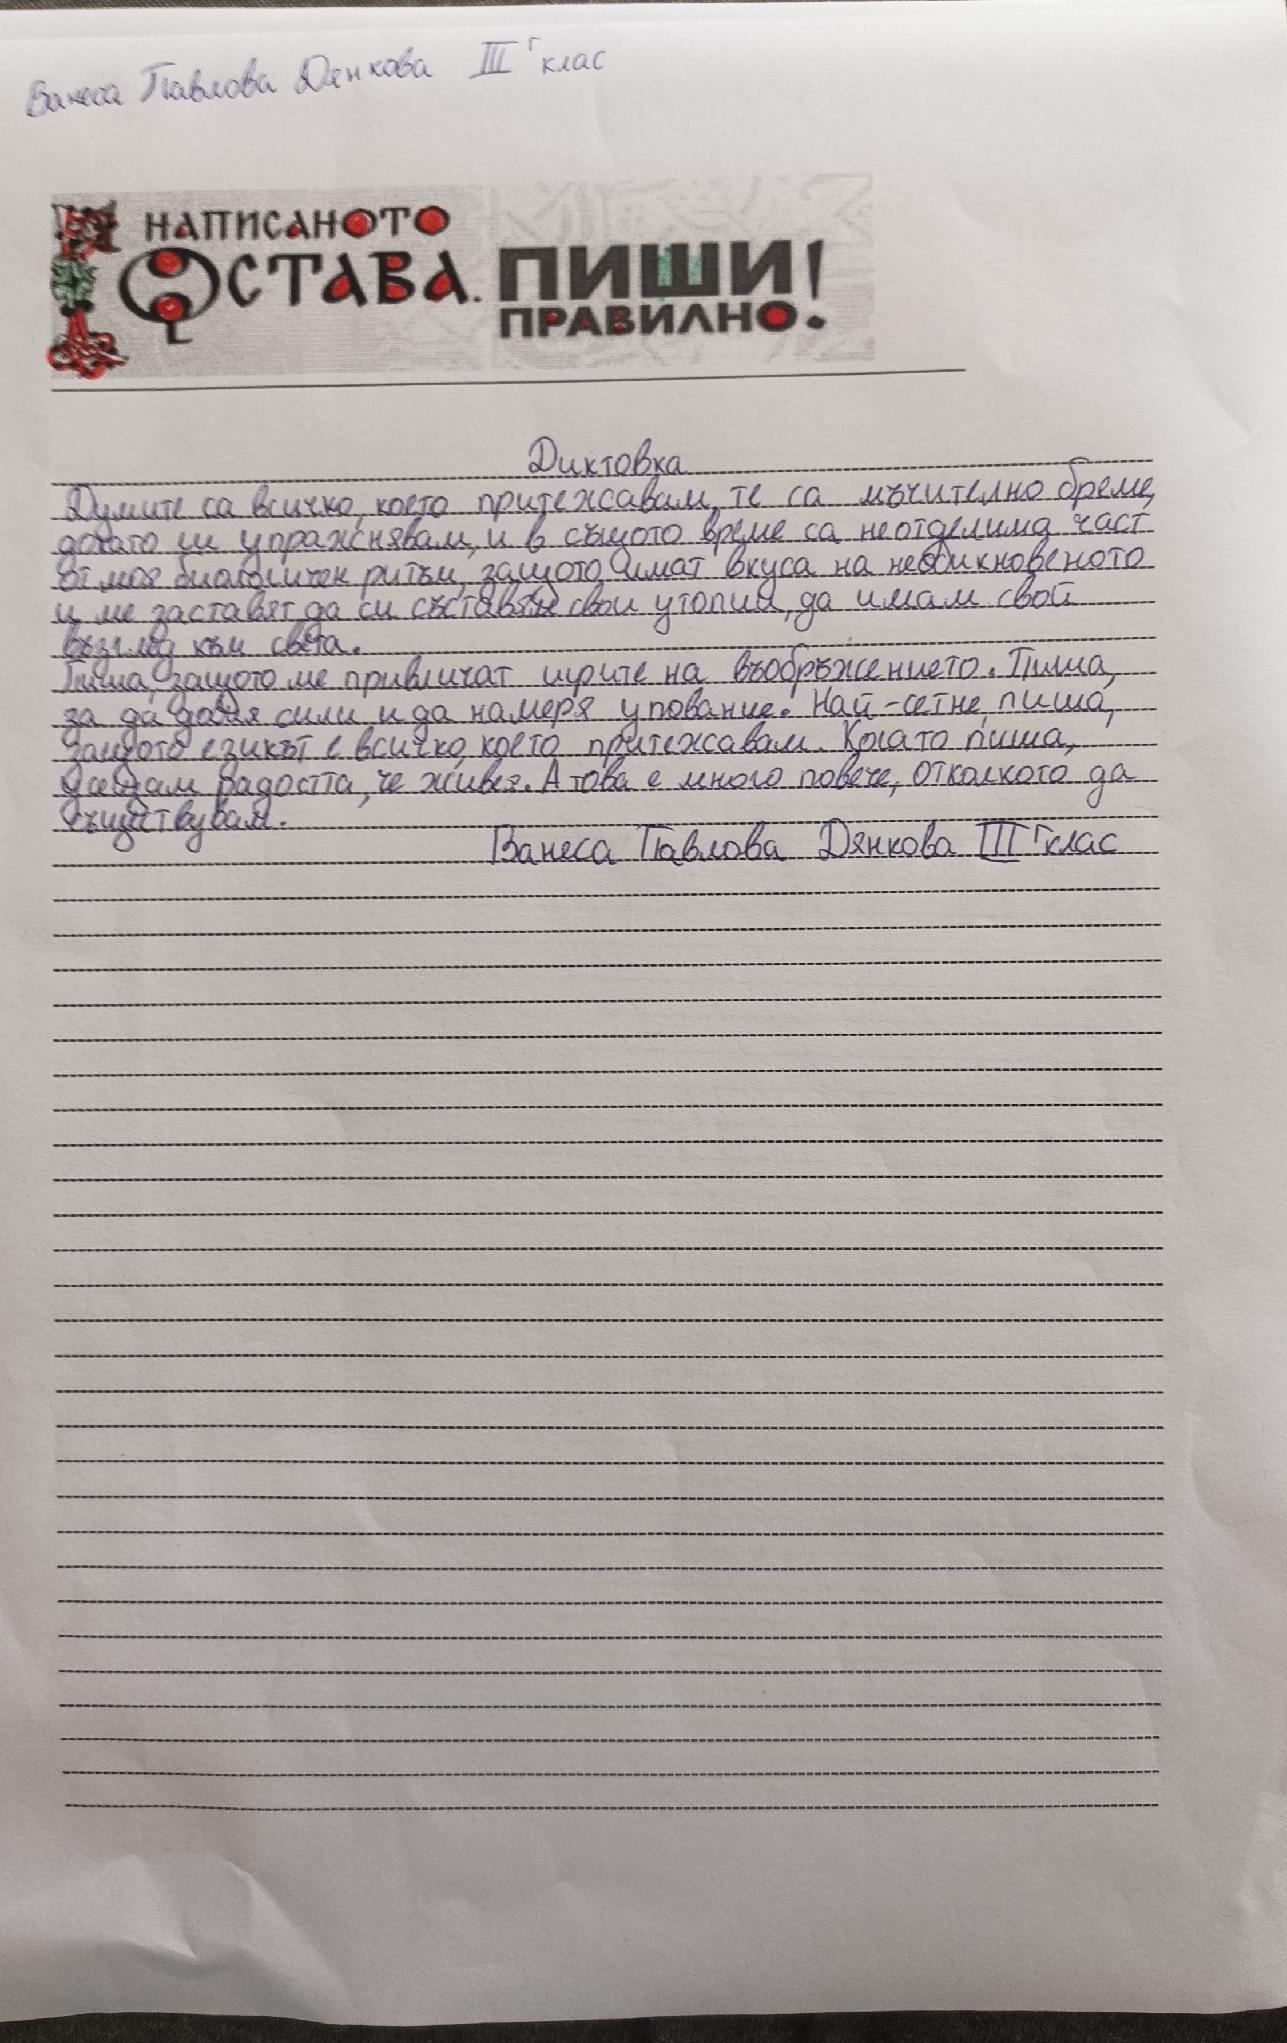 Ванеса Павлова Дянкова III г клас
НАПИСАНОТО
ОСТАВА. ПИШИ
ПРАВИЛНО!
Диктовка
Думите са всичко, което притежсавам, те са мъчително бреме,
докато ги упражснявам, и в същото време са неотделима част
от моя биологичен ритъм, защото имат вкуса на необикновеното
и ме заставят да си съставям свои утопии, да имам свой
възглед към света.
Пиша, защото ме привличат игрите на въображението. Пиша,
за да добия сили и да намеря упование. Най-сетне, пиша,
защото езикът е всичко, което притежсавам. Когато пиша,
усещам радостта, че живея. А това е много повече, отколкото да
съществувам.
Ванеса Павлова Дянкова III г клас